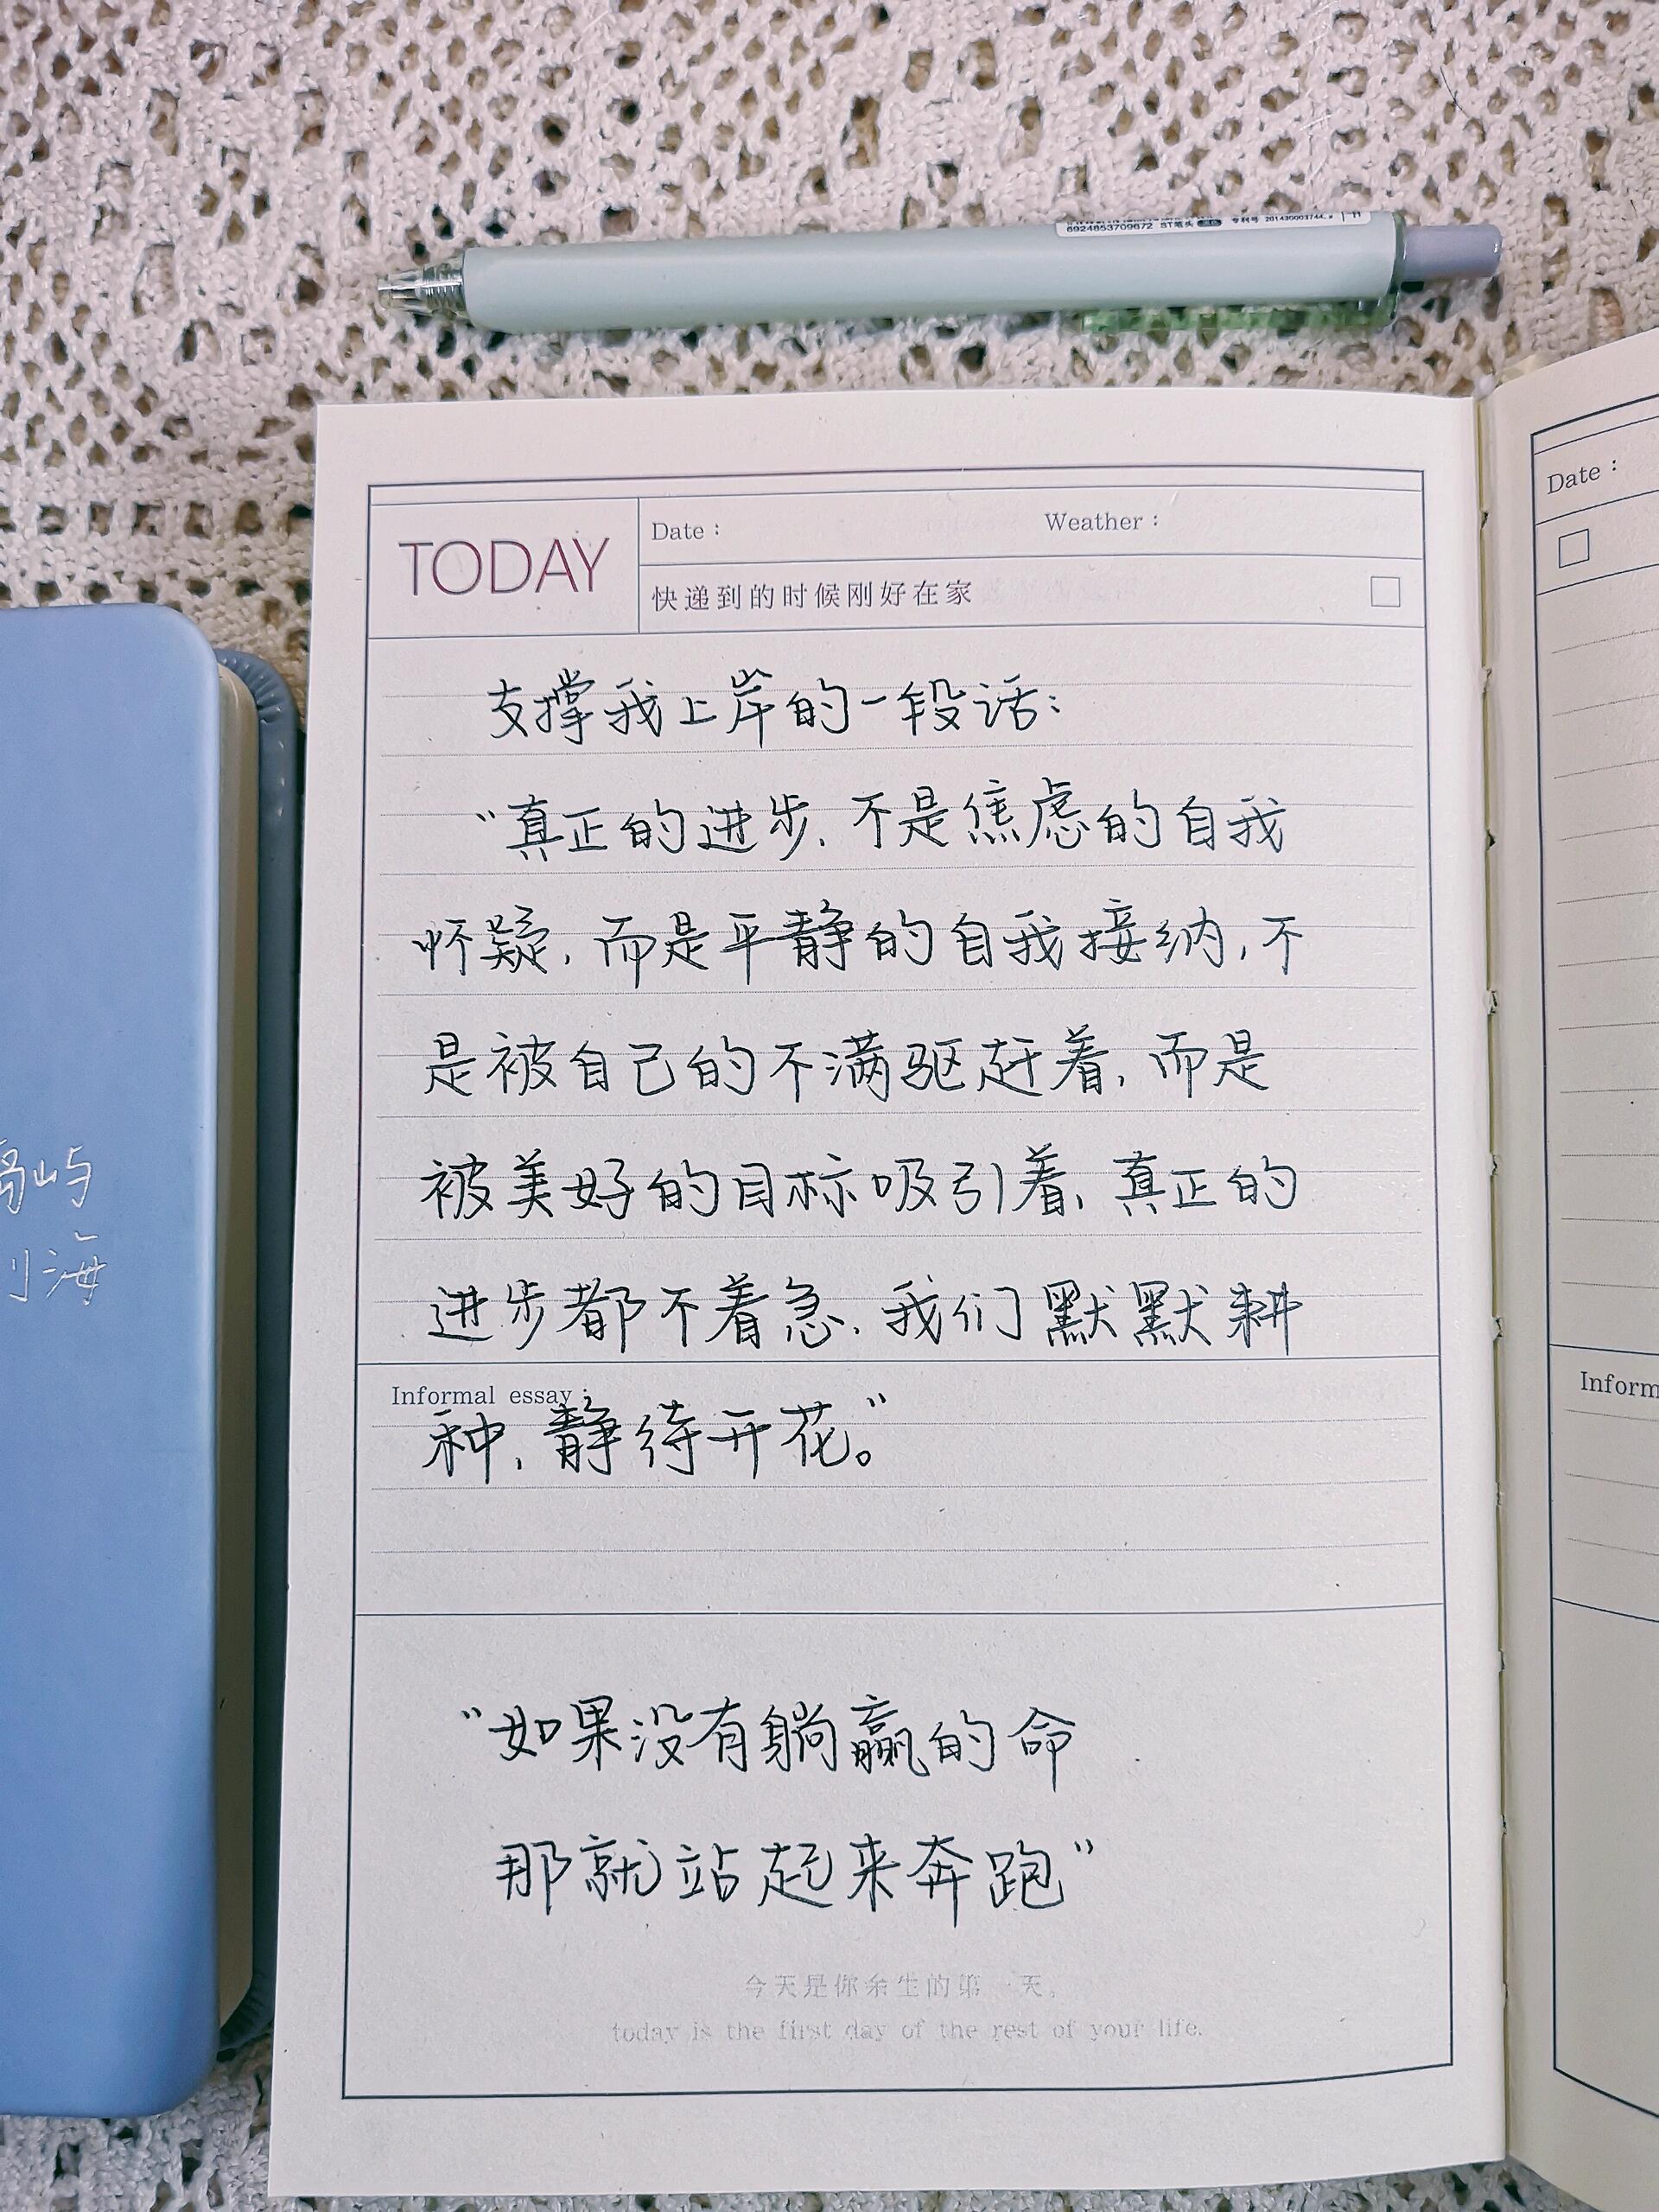 6924853709672 ST笔头 专利号
TODAY
Date：
Weather：
快递到的时候刚好在家
支撑我上岸的一段话：
“真正的进步，不是焦虑的自我
怀疑，而是平静的自我接纳，不
是被自己的不满驱赶着，而是
被美好的目标吸引着，真正的
进步都不着急，我们默默耕
Informal essay：
种，静待开花。”
“如果没有躺赢的命
那就站起来奔跑”
今天是你余生的第一天。
today is the first day of the rest of your life.
屿
海
Date：
Inform